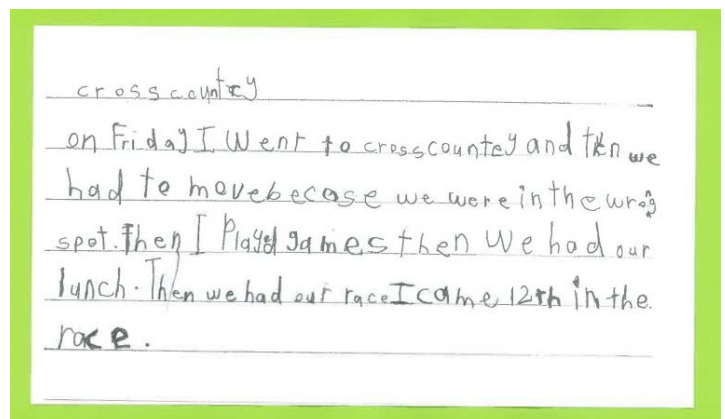 cross country
on Friday I Went to cross countey and then we
had to move becase we were in the wrong
spot. Then I Played games then We had our
lunch. Then we had our race I came 12th in the
race.